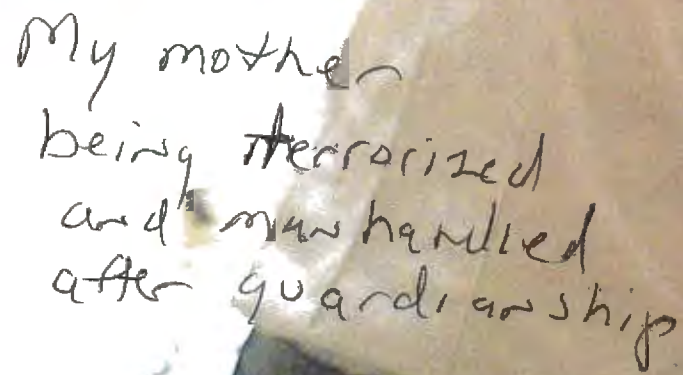 My mother
being terrorized
and manhandled
after guardianship